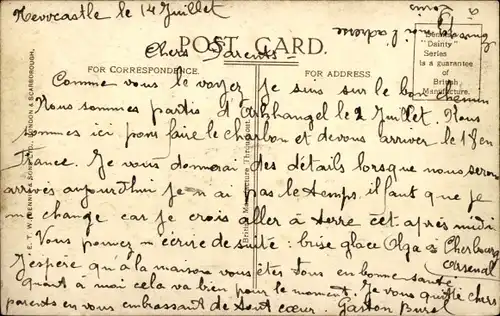 Newcastle le 14 Juillet
Chers Parents
POST CARD.
FOR CORRESPONDENCE.
FOR ADDRESS.
Dennis
"Dainty"
Series
is a guarantee
of
British
Manufacture.
l'adresse
à
Comme vous le voyez je suis sur le bon chemin
Nous sommes partis d'Arkhangel le 2 Juillet. Nous
sommes ici pour faire le charbon et devons arriver le 18 en
France. Je vous donnerai des détails lorsque nous serons
arrivés aujourd'hui je n'ai pas le temps il faut que je
me change car je crois aller à terre cet après midi
Vous pouvez m'écrire de suite : brise glace Olga à Cherbourg
Arsenal
J'espère qu'à la maison vous êtes tous en bonne santé
quant à moi cela va bien pour le moment. Je vous quitte chers
parents en vous embrassant de tout cœur. Gaston
E. T. W. DENNIS & SONS LTD., LONDON & SCARBOROUGH.
British Manufacture Throughout